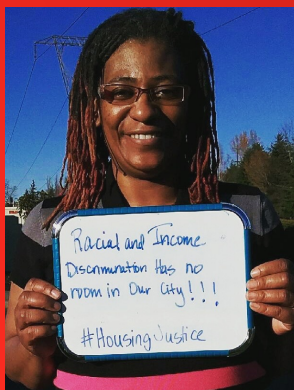 Racial and Income
Discrimination Has no
room in Our City!!!
#HousingJustice